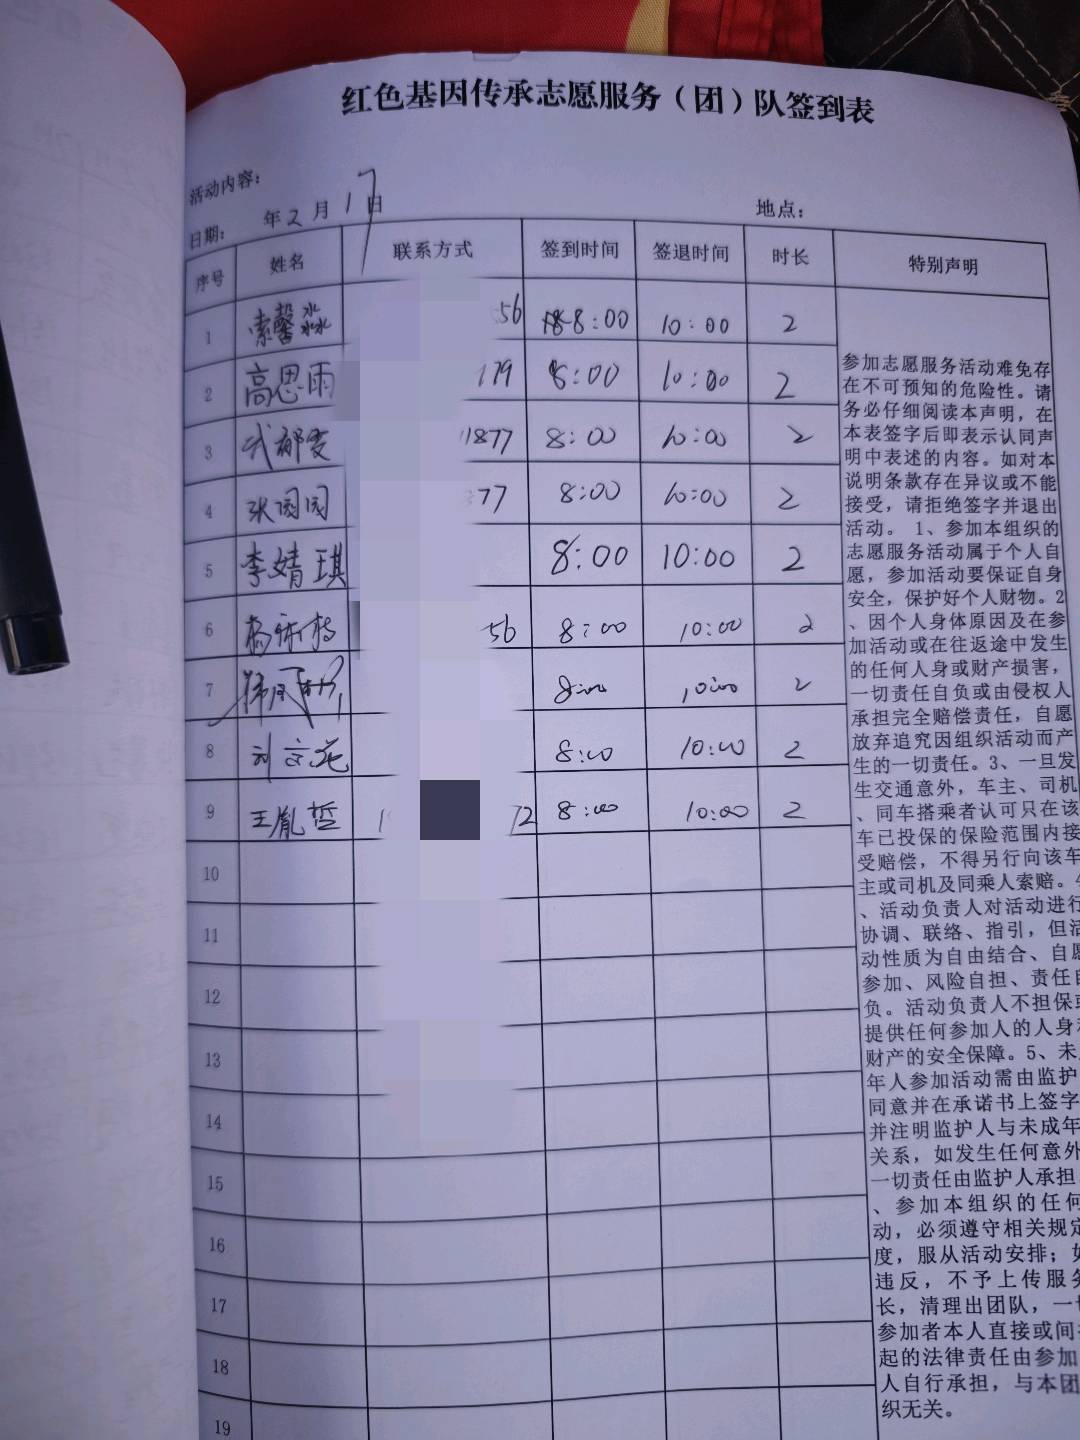 红色基因传承志愿服务（团）队签到表
活动内容：
日期： 年2月17日 地点：
序号 姓名 联系方式 签到时间 签退时间 时长 特别声明
1 索馨淼 56 8:00 10:00 2
2 高思雨 179 8:00 10:00 2
3 武郁雯 11877 8:00 10:00 2
4 张园园 377 8:00 10:00 2
5 李婧琪 8:00 10:00 2
6 56 8:00 10:00 2
7 8:00 10:00 2
8 刘文苑 8:00 10:00 2
9 王胤哲 1 72 8:00 10:00 2
10
11
12
13
14
15
16
17
18
19
参加志愿服务活动难免存
在不可预知的危险性。请
务必仔细阅读本声明，在
本表签字后即表示认同声
明中表述的内容。如对本
说明条款存在异议或不能
接受，请拒绝签字并退出
活动。 1、参加本组织的
志愿服务活动属于个人自
愿，参加活动要保证自身
安全，保护好个人财物。2
、因个人身体原因及在参
加活动或在往返途中发生
的任何人身或财产损害，
一切责任自负或由侵权人
承担完全赔偿责任，自愿
放弃追究因组织活动而产
生的一切责任。3、一旦发
生交通意外，车主、司机
、同车搭乘者认可只在该
车已投保的保险范围内接
受赔偿，不得另行向该车
主或司机及同乘人索赔。4
、活动负责人对活动进行
协调、联络、指引，但活
动性质为自由结合、自愿
参加、风险自担、责任自
负。活动负责人不担保或
提供任何参加人的人身和
财产的安全保障。5、未
年人参加活动需由监护
同意并在承诺书上签字
并注明监护人与未成年
关系，如发生任何意外
一切责任由监护人承担
、参加本组织的任何
动，必须遵守相关规定
度，服从活动安排；如
违反，不予上传服务
长，清理出团队，一切
参加者本人直接或间接
起的法律责任由参加
人自行承担，与本团
织无关。